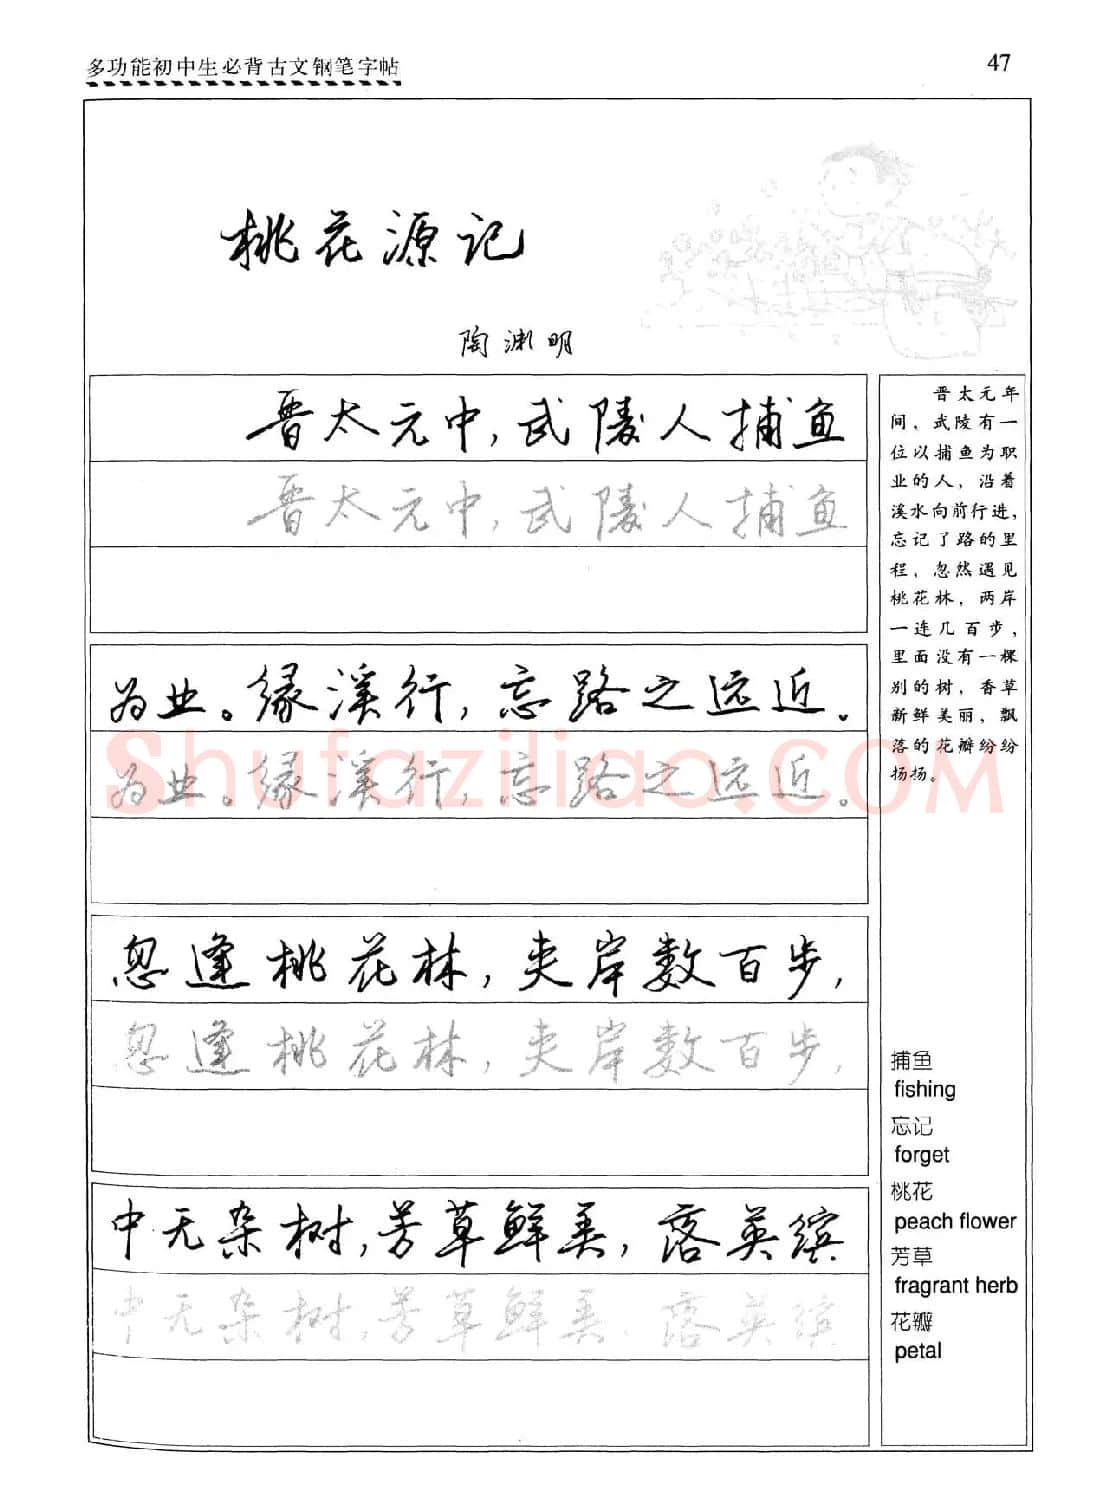 多功能初中生必背古文钢笔字帖
47
桃花源记
陶渊明
晋太元中,武陵人捕鱼
晋太元中,武陵人捕鱼
为业。缘溪行,忘路之远近。
为业。缘溪行,忘路之远近。
忽逢桃花林,夹岸数百步,
忽逢桃花林,夹岸数百步,
中无杂树,芳草鲜美,落英缤
中无杂树,芳草鲜美,落英缤
晋太元年
间,武陵有一
位以捕鱼为职
业的人,沿着
溪水向前行进,
忘记了路的里
程,忽然遇见
桃花林,两岸
一连几百步,
里面没有一棵
别的树,香草
新鲜美丽,飘
落的花瓣纷纷
扬扬。
捕鱼
fishing
忘记
forget
桃花
peach flower
芳草
fragrant herb
花瓣
petal
Shufaziliao.COM